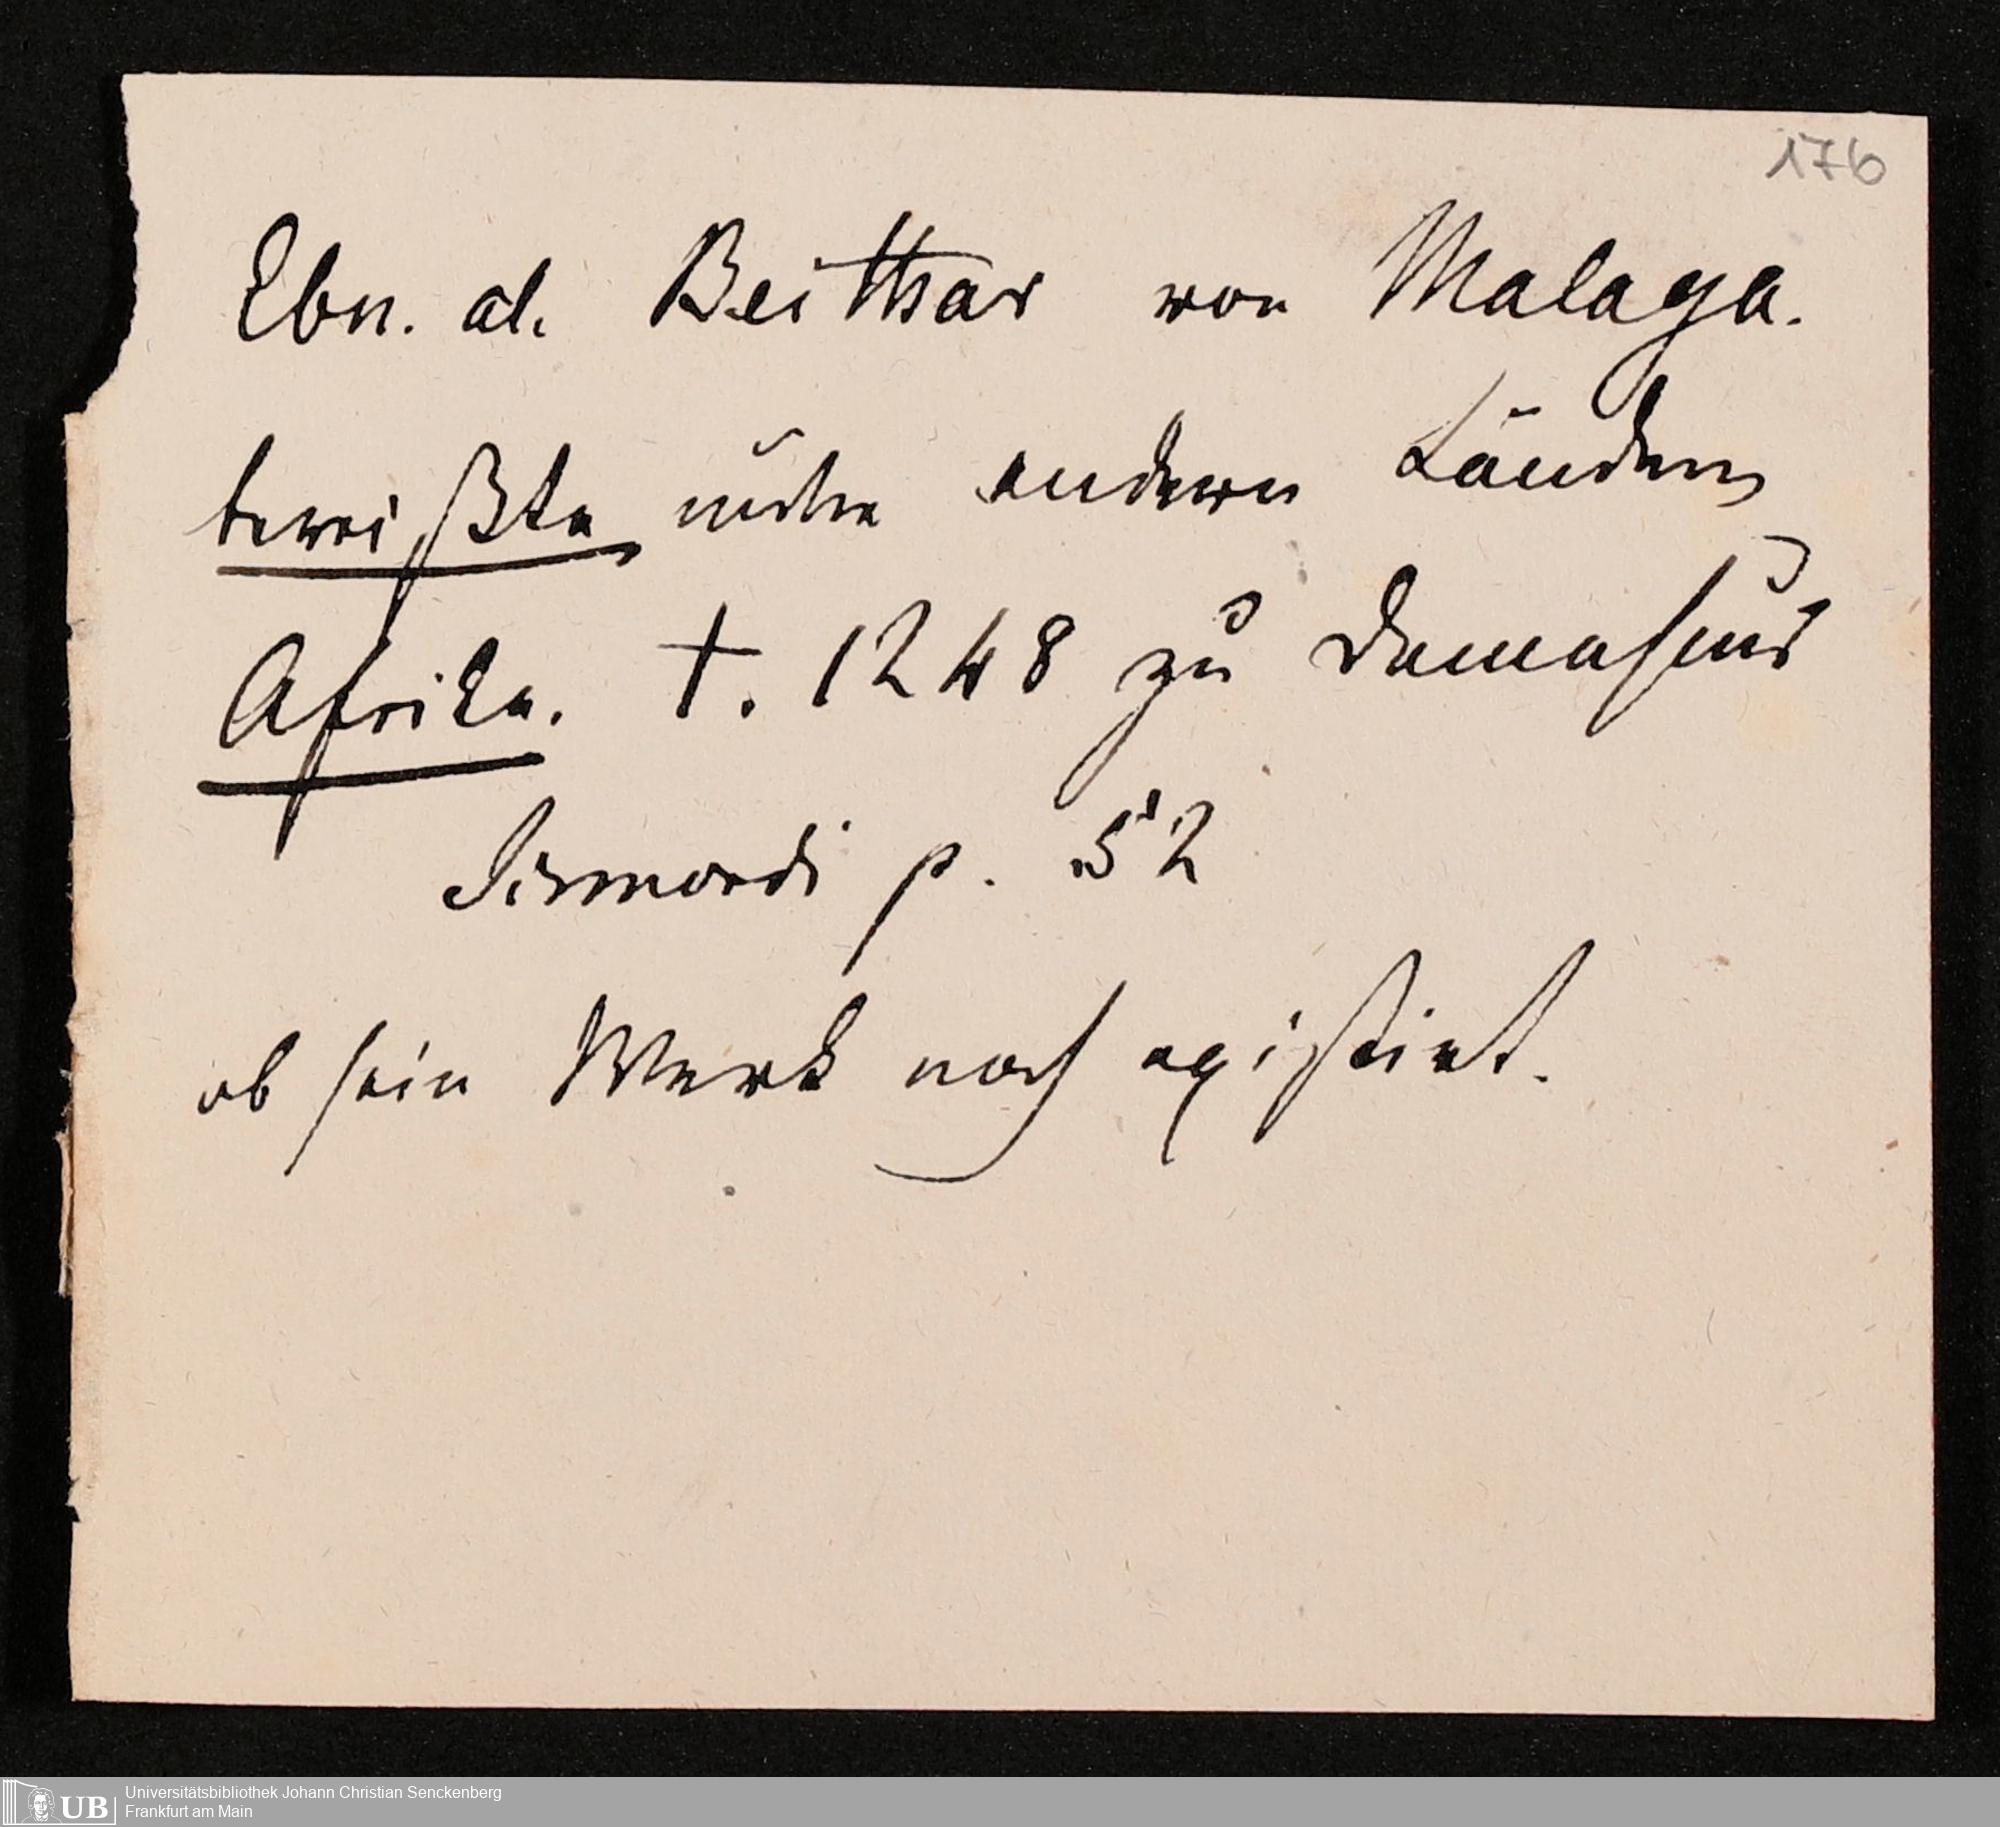 176
Ebn. al. Beithar von Malaga.
bereißte unter andern Ländern
Afrika. †. 1248 zu Damaskus
Sismondi p. 52
ob sein Werk noch existirt.
UB Universitätsbibliothek Johann Christian Senckenberg
Frankfurt am Main